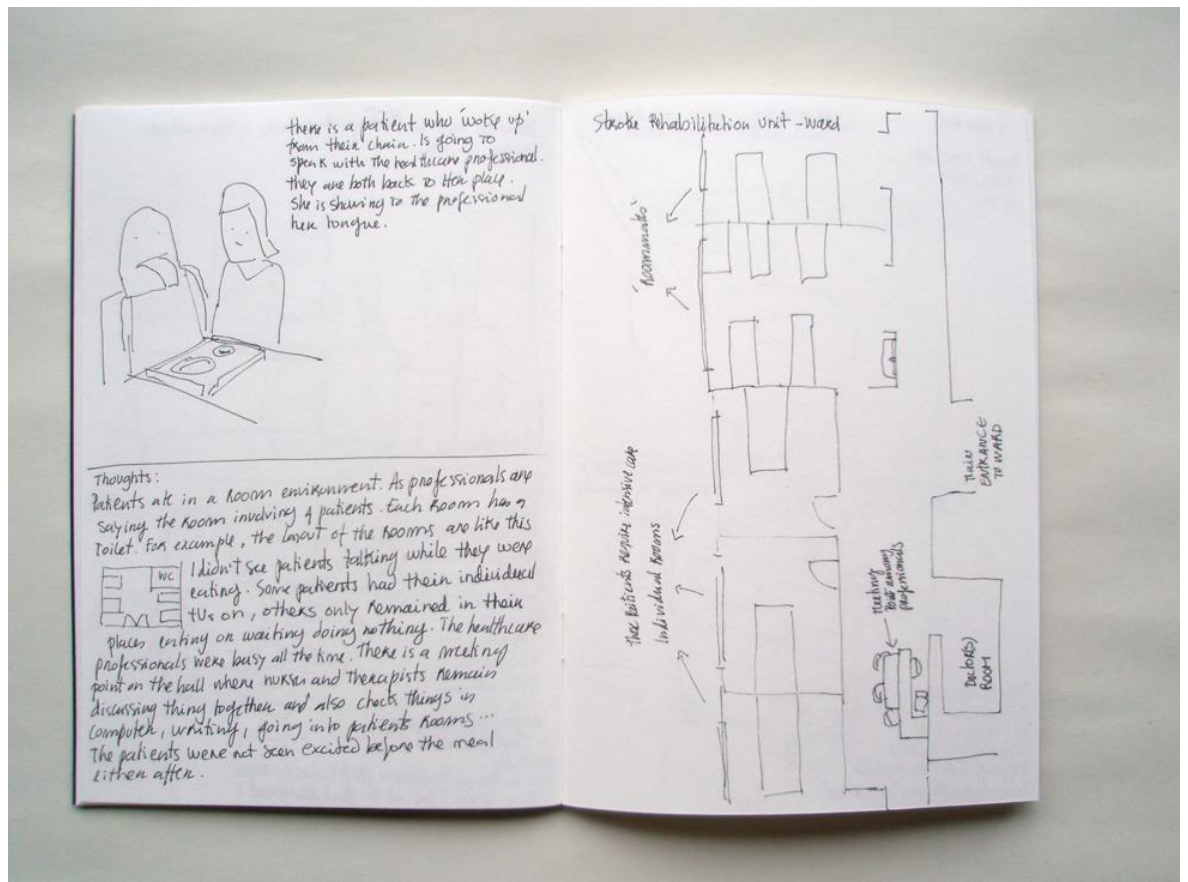 there is a patient who 'woke up'
from their chair. Is going to
speak with the healthcare professional.
they are both back to Her place.
She is showing to the professional
her tongue.
Thoughts:
Patients ate in a Room environment. As professionals are
saying the Room involving 4 patients. Each Room has a
Toilet. For example, the layout of the Rooms are like this
WC
I didn't see patients talking while they were
eating. Some patients had their individual
TVs on, others only Remained in their
places eating or waiting doing nothing. The healthcare
professionals were busy all the time. There is a meeting
point on the hall where nurses and Therapists Remain
discussing thing together and also check things in
computer, writing, going into patients Rooms...
The patients were not seen excited before the meal
either after.
Stroke Rehabilitation unit - ward
'Roommates'
These Patients Require intensive care
Individual Rooms
Main
ENTRANCE
TO WARD
Meeting
Point among
professionals
Doctor(s)
ROOM